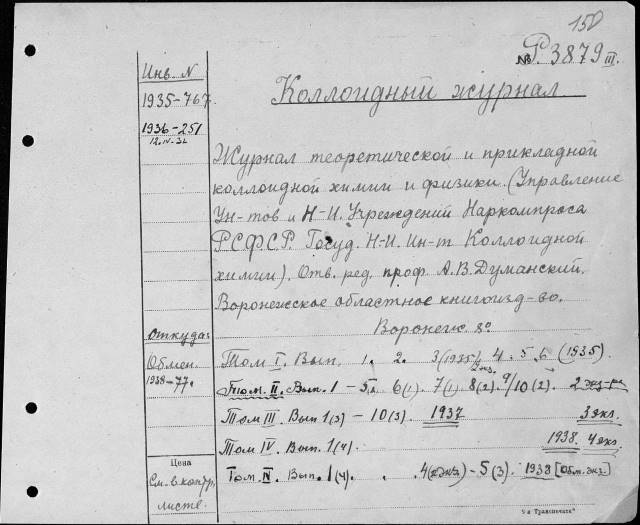 150
№ Р. 3879 III.
Инв. N
1935-767.
1936-251
12.IV-36
Коллоидный журнал.
Журнал теоретической и прикладной
коллоидной химии и физики. (Управление
Ун-тов и Н-И. Учреждений Наркомпроса
РСФСР. Госуд. Н-И. Ин-т Коллоидной
химии). Отв. ред. проф. А.В. Думанский.
Воронежское областное книгоизд-во.
Воронеж. 8°
откуда:
Обмен.
1938-77.
Том I. Вып. 1. 2. 3 (1935). 4. 5. 6 (1935).
2 экз.
Том. II. Вып. 1 - 5. 6(1). 7(1) 8(2). 9/10(2).
Том III. Вып 1(3) - 10(3). 1937 3 экз.
Том IV. Вып. 1(4). 1938. 4 экз.
Том. IV. Вып. 1(4). 4(2экз) - 5(3). 1938 [Обм. экз.]
Цена
См. в контр.
листе.